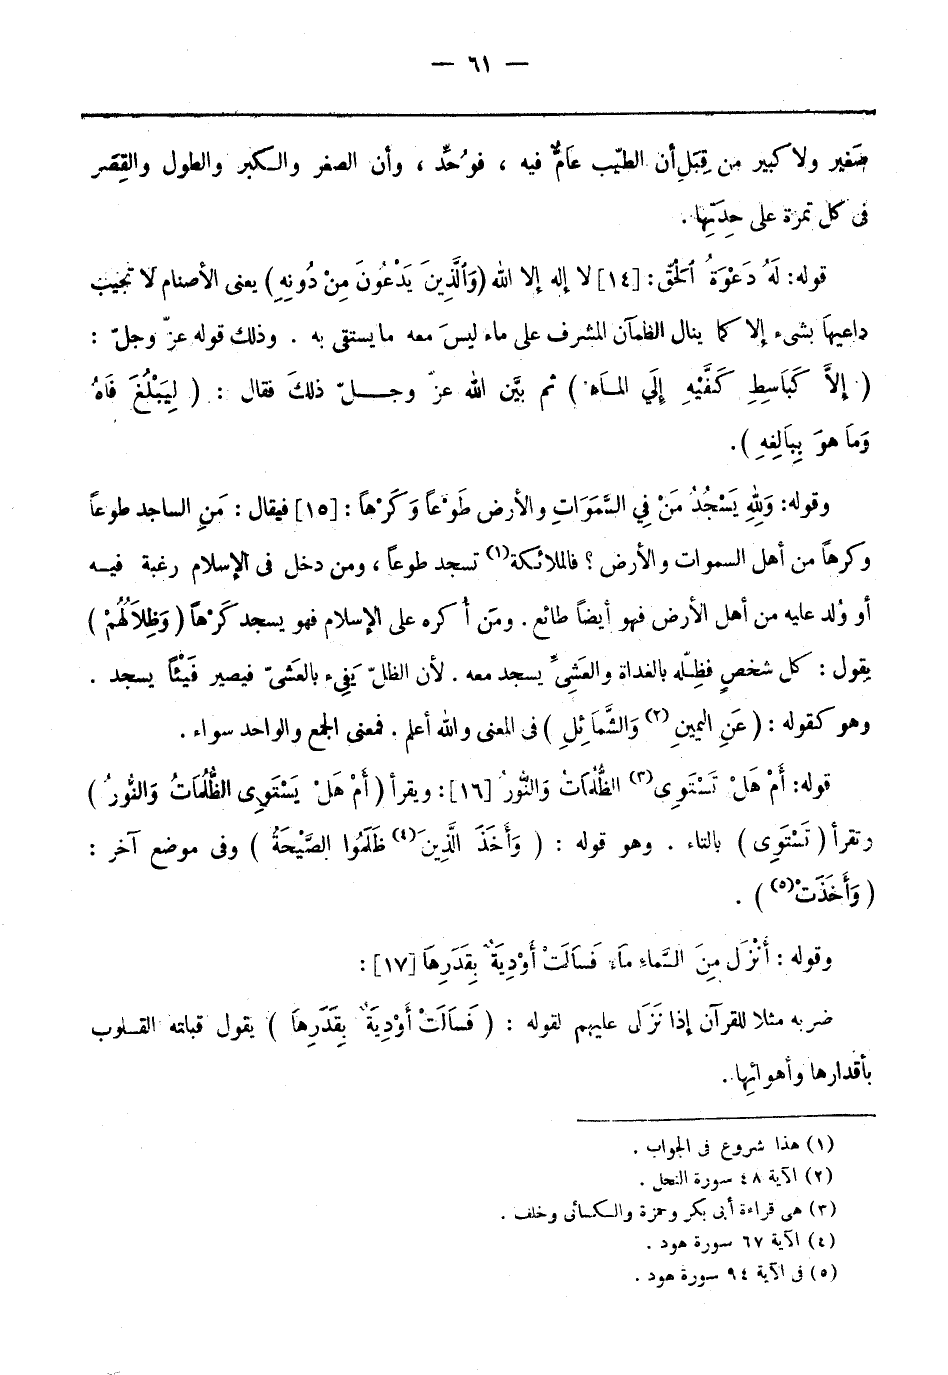 — ٦١ —
صَغير ولا كبير من قِبَلِ أن الطيّب عَامٌّ فيه ، فوُحِّد ، وأن الصغر والكبر والطول والقِصَر
فى كل تمرة على حِدَتِها .
قوله: لَهُ دَعْوَةُ ٱلْحَقِّ: [١٤] لا إله إلا الله (وَٱلَّذِينَ يَدْعُونَ مِنْ دُونِهِ) يعنى الأصنام لا تجيب
داعيها بشىء إلا كما ينال الظمآن المشرف على ماء ليسَ معه ما يستقى به . وذلك قوله عزّ وجلّ :
( إِلاَّ كَبَاسِطِ كَفَّيْهِ إِلَي المَاء ) ثم بيَّن الله عزّ وجلّ ذلكَ فقال : ( لِيَبْلُغَ فَاهُ
وَمَا هوَ بِبَالِغِهِ ).
وقوله: وَلِلهِ يَسْجُدُ مَنْ فِي السَّمَوَاتِ والأرض طَوْعاً وَكَرْهاً : [١٥] فيقال : مَنِ الساجد طوعاً
وكرهاً من أهل السموات والأرض ؟ فالملائكة(١) تسجد طوعاً ، ومن دخل فى الإسلام رغبة فيه
أو وُلد عليه من أهل الأرض فهو أيضاً طائع . ومَن أُكره على الإسلام فهو يسجد كَرْهاً ( وَظِلاَلُهُمْ )
يقول : كل شخصٍ فظِلّه بالغداة والعَشِىّ يسجد معه . لأن الظلّ يَفِىء بالعَشىّ فيصير فَيْئاً يسجد .
وهو كقوله : ( عَنِ اليمينِ (٢) وَالشَّمَائِلِ ) فى المعنى والله أعلم . فمعنى الجمع والواحد سواء .
قوله: أَمْ هَلْ تَسْتَوِى(٣) الظُّلُمَاتُ وَالنُّورُ [١٦]: ويقرأ ( أَمْ هَلْ يَسْتَوِى الظُّلُمَاتُ وَالنُّورُ )
وتقرأ ( تَسْتَوِى ) بالتاء . وهو قوله : ( وَأَخَذَ الَّذِينَ(٤) ظَلَمُوا الصَّيْحَةُ ) وفى موضع آخر :
( وَأَخَذَتْ(٥) ) .
وقوله : أَنْزَلَ مِنَ السَّمَاءِ مَاءً فَسَالَتْ أَوْدِيَةٌ بِقَدَرِهَا [١٧] :
ضربه مثلا للقرآن إذا نَزَلَ عليهم لقوله : ( فَسَالَتْ أَوْدِيَةٌ بِقَدَرِهَا ) يقول قبلته القلوب
بأقدارها وأهوائِها .
(١) هذا شروع فى الجواب .
(٢) الآية ٤٨ سورة النحل .
(٣) هى قراءة أبى بكر وحمزة والكسائى وخلف .
(٤) الآية ٦٧ سورة هود .
(٥) فى الآية ٩٤ سورة هود .